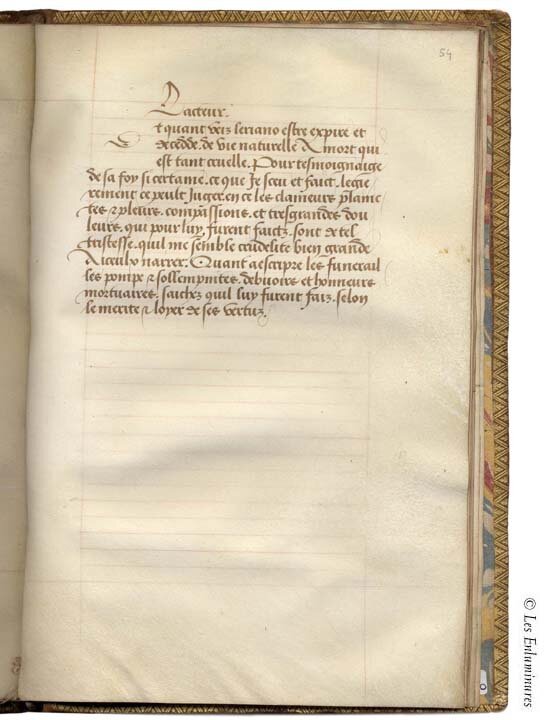 54
Lacteur.
Et quant veis leriano estre expire et
decedde. de vie naturelle A mort qui
est tant cruelle. Pour tesmoignaige
de sa foy si certaine. ce que Je sceu et faict. legie
rement ce peult Juger. en ce les clameurs plaine
tes & pleurs. compassions. et tresgrandes dou
leurs. qui pour luy furent faictz. sont de tel
tristesse. quil me semble crudelite bien grande
A iceulx narrer. Quant a escripre les funerail
les pompe & sollempnites. debuoirs et honneurs
mortuaires. saichez quil luy furent faiz. selon
le merite & loyer de ses vertuz.
© Les Enluminures